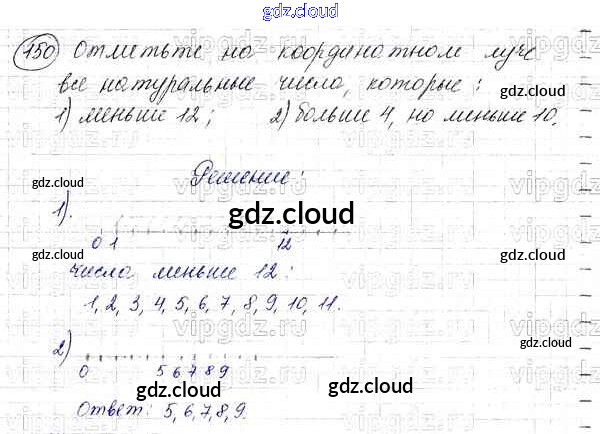 gdz.cloud
150 Отметьте на координатном луче
gdz.cloud
все натуральные числа, которые:
gdz.cloud
1) меньше 12; 2) больше 4, но меньше 10.
vipgdz.ru
Решение:
gdz.cloud vipgdz.ru gdz.cloud
1).
gdz.cloud
0 1 12
gdz.cloud gdz.cloud
числа меньше 12:
1, 2, 3, 4, 5, 6, 7, 8, 9, 10, 11.
vipgdz.ru vipgdz.ru
2)
0 5 6 7 8 9
gdz.cloud gdz.cloud
gdz.cloud
Ответ: 5, 6, 7, 8, 9.